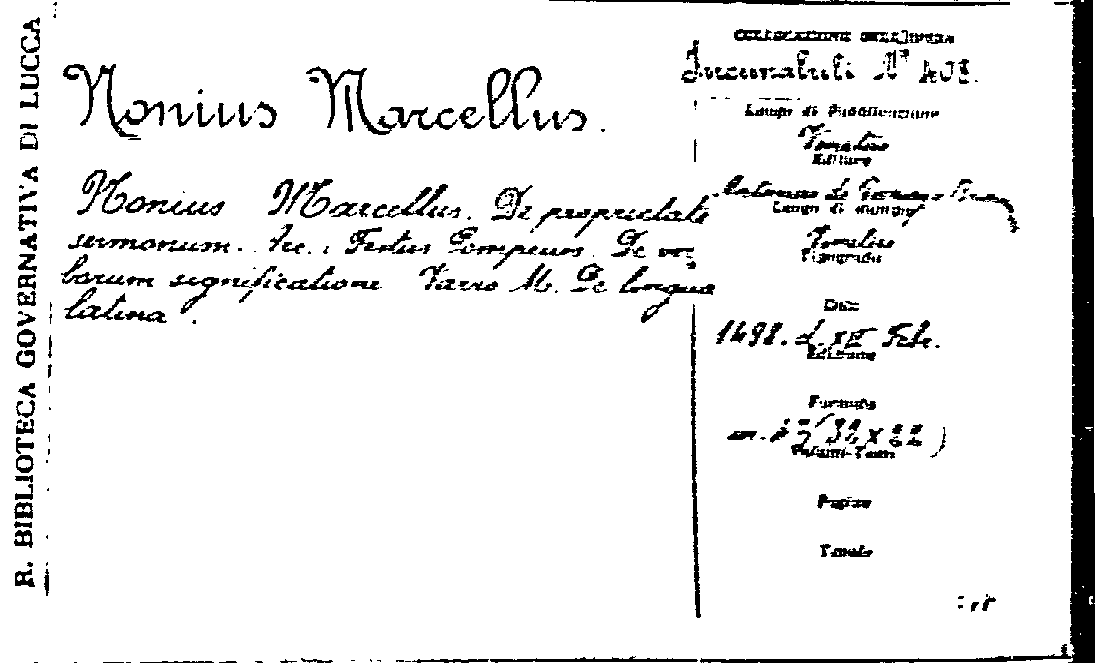 R. BIBLIOTECA GOVERNATIVA DI LUCCA
Nonius Marcellus.
Nonius Marcellus. De proprietate
sermonum. Festus Pompeius. De ver
borum significatione Varro M. De lingua
latina.
COLLOCAZIONE DELL'OPERA
Incunabuli N° 403.
Luogo di Pubblicazione
Venetiis
Editore
Luogo di stampa
Venetiis
Tipografo
Data
1498. d. Feb.
Edizione
Formato
(32 x 22)
Volumi-Tomi
Pagine
Tavole